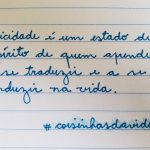 icidade é um estado de
írito de quem aprende
se traduzir e a se
nduzir na vida.
#coisinhasdavida